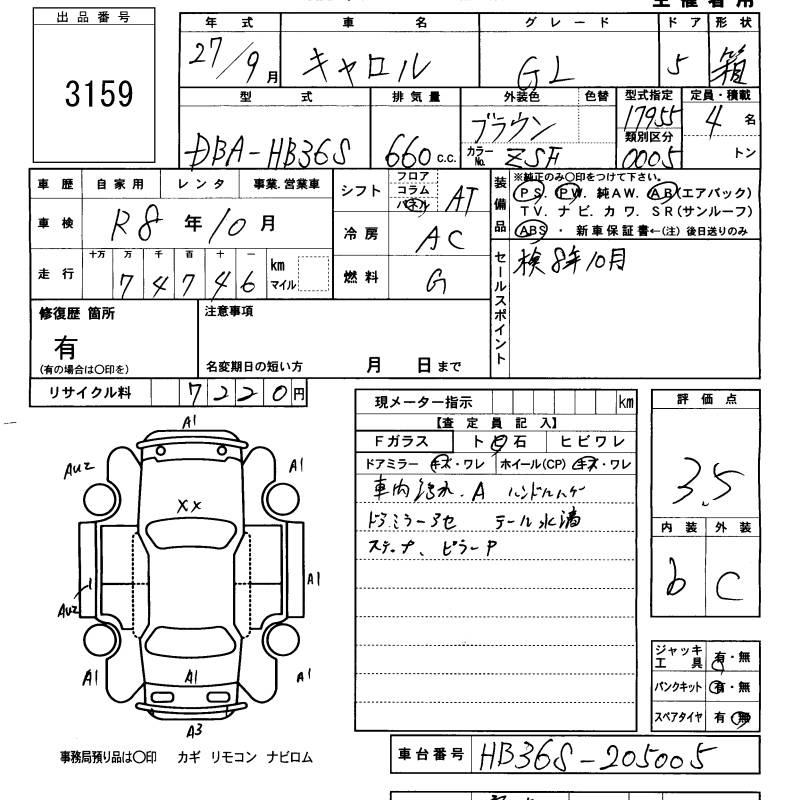 出品番号
3159
年式 車名 グレード ドア 形状
27/9月 キャロル GL 5 箱
型式 排気量 外装色 色替 型式指定 定員・積載
DBA-HB36S 660c.c. ブラウン 17955 4名
カラーNo. ZSF 類別区分 0005 トン
車歴 自家用 レンタ 事業.営業車
車検 R8年10月
走行 十万 万 千 百 十 一 km マイル
7 4 7 4 6
シフト フロア コラム パネル AT
冷房 AC
燃料 G
装備品
※純正のみ〇印をつけて下さい。
PS. PW. 純AW. AB(エアバック)
TV. ナビ. カワ. SR(サンルーフ)
ABS ・ 新車保証書←(注) 後日送りのみ
セールスポイント
検8年10月
修復歴 箇所
有
(有の場合は〇印を)
注意事項
名変期日の短い方 月 日まで
リサイクル料 7220円
現メーター指示 km
【査定員記入】
Fガラス ト 石 ヒビワレ
ドアミラー キズ・ワレ ホイール(CP) キズ・ワレ
車内汚れ.A
ドアミラー
ステップ、ピラーP
評価点
3.5
内装 外装
b C
ジャッキ工具 有・無
パンクキット 有・無
スペアタイヤ 有・無
A1
AU2 A1
XX
AU2 A1
A1 A1 A1
A3
事務局預り品は〇印 カギ リモコン ナビロム
車台番号 HB36S-205005